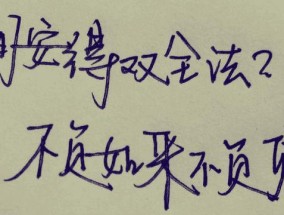 安得双全法?
不负如来不负